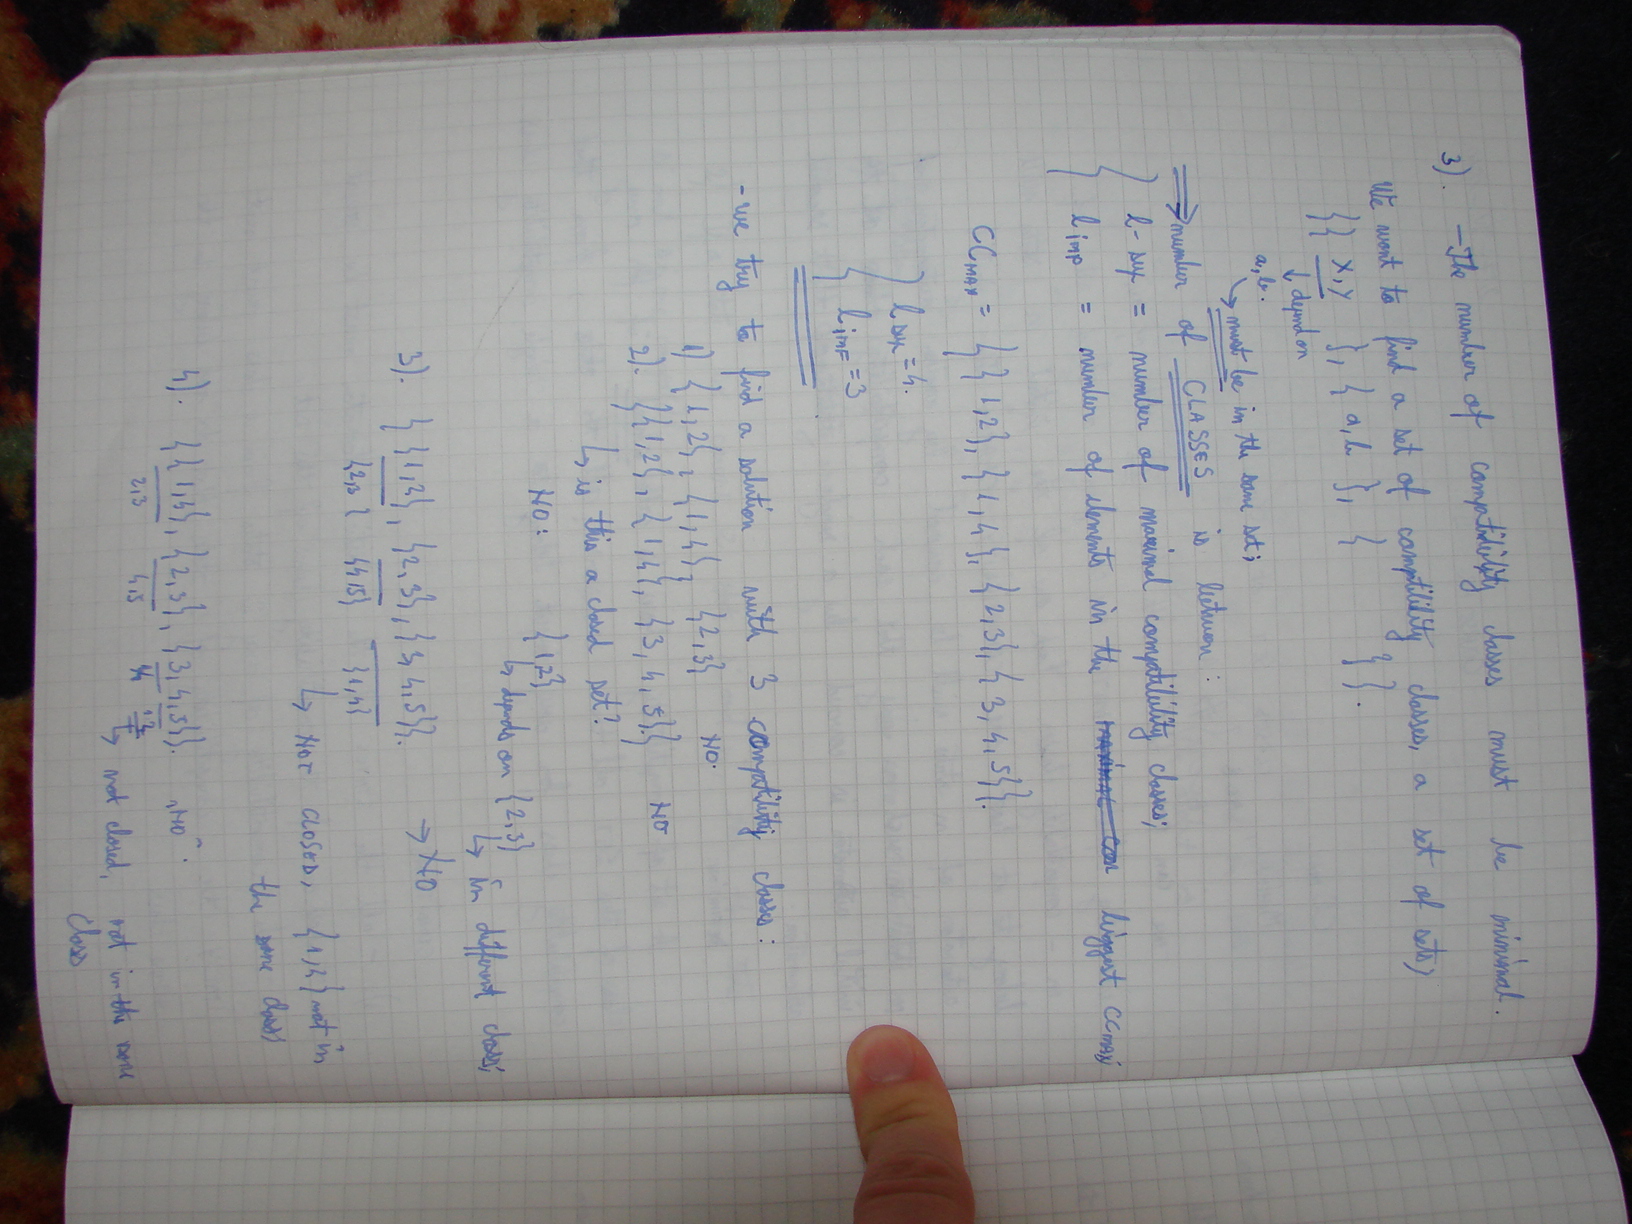 3). - The number of compatibility classes must be minimal.
We want to find a set of compatibility classes, a set of sets)
{{ x,y }, { a,b }, { } }.
↓ depend on
a,b.
→ must be in the same set;
⇒ number of CLASSES is between :
l-sup = number of maximal compatibility classes;
l inf = number of elements in the biggest CCMAX;
CCMAX = {{1,2}, {1,4}, {2,3}, {3,4,5}}.
l sup = 4.
l inf = 3
- we try to find a solution with 3 compatibility classes :
1) {1,2}, {1,4}, {2,3} NO.
2). {{1,2}, {1,4}, {3,4,5}} NO
↳ is this a closed set?
NO: {1,2}
↳ depends on {2,3}
↳ in different class;
3). {{1,2}, {2,3}, {3,4,5}}. → NO
{2,3} {4,5} {1,4}
↳ NOT CLOSED, {1,4} not in
the same class
4). {{1,4}, {2,3}, {3,4,5}}. "NO".
2,3 4,5
↳ not closed, not in the same
class